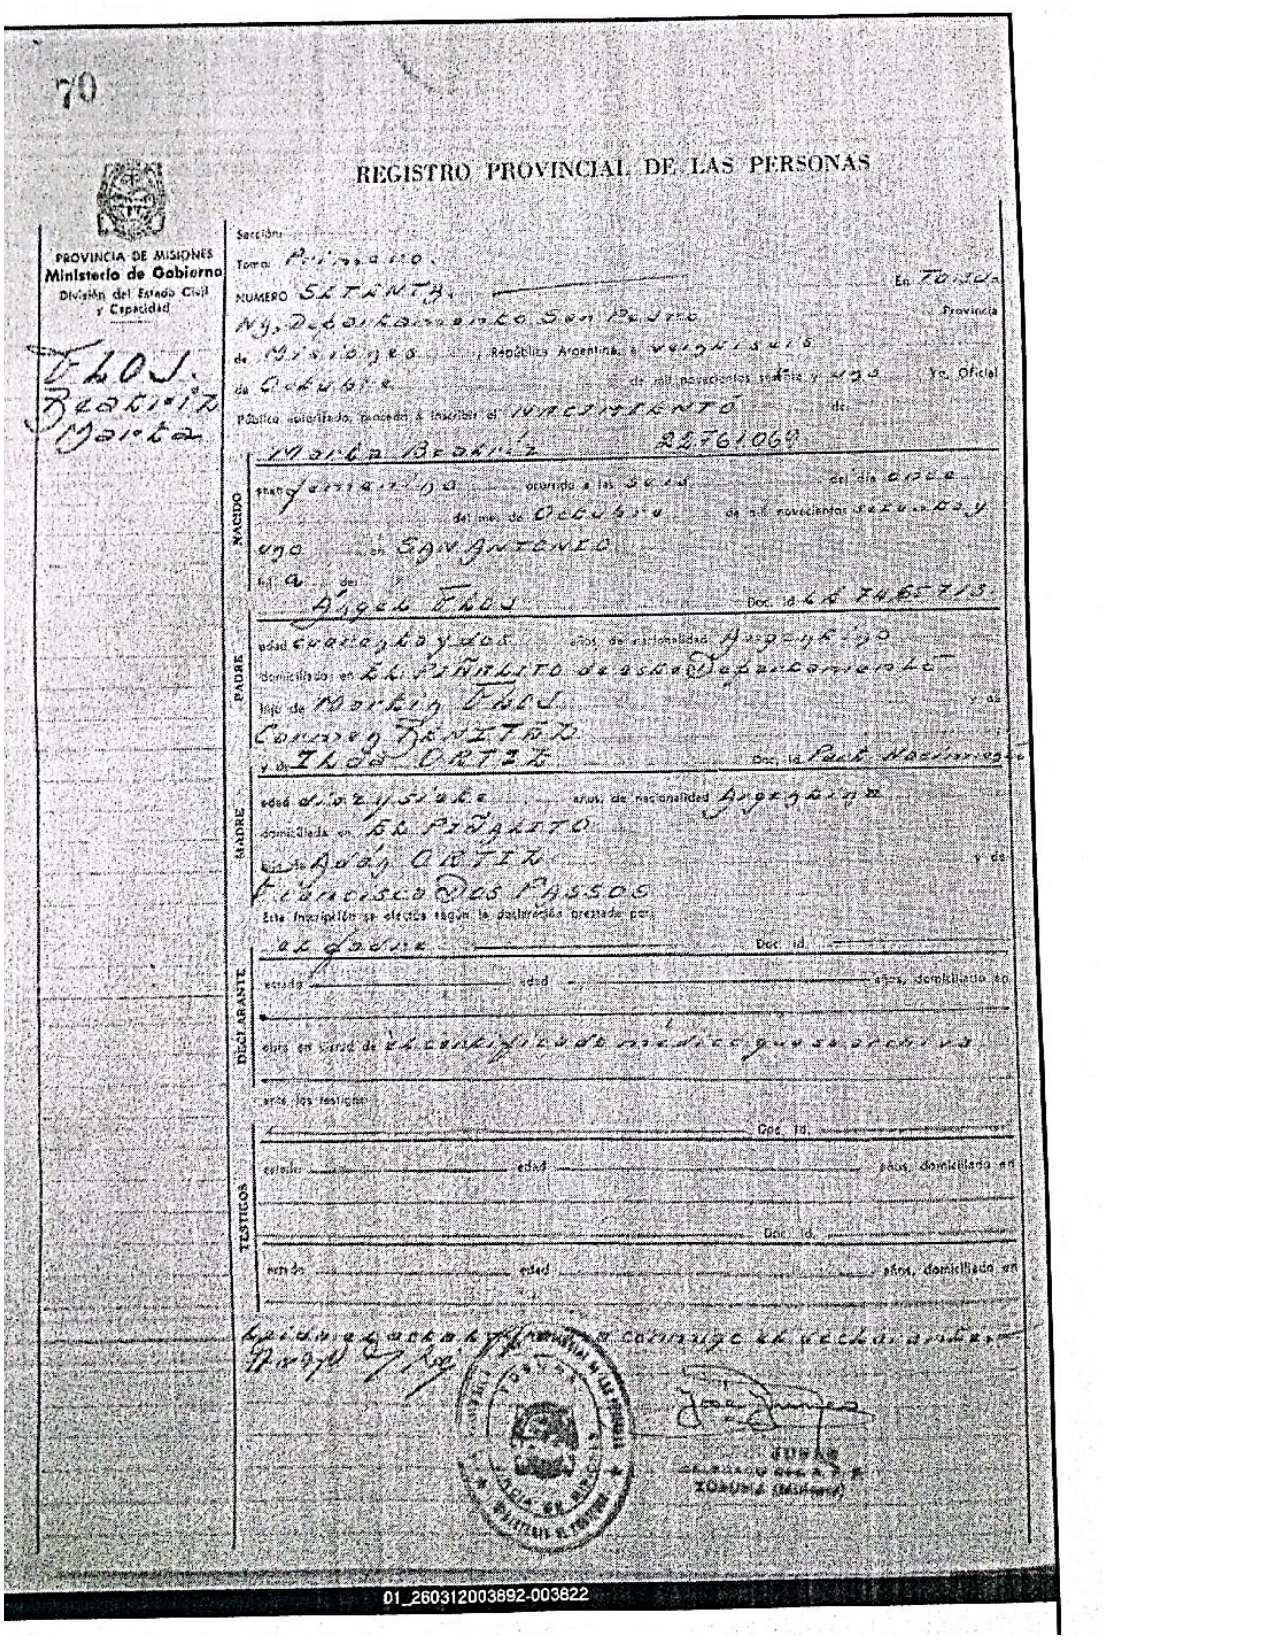 70
REGISTRO PROVINCIAL DE LAS PERSONAS
PROVINCIA DE MISIONES
Ministerio de Gobierno
División del Estado Civil
y Capacidad
Beatriz
Marta
Sección:
Tomo: Primero.
NUMERO SETENTA. En Tobu-
Ny, Departamento San Pedro Provincia
de Misiones República Argentina, a veintiseis
de Octubre de mil novecientos setenta y uno Yo, Oficial
Público autorizado, procedo a inscribir el NACIMIENTO de:
Marta Beatríz 22761069
NACIDO
sexo femenino ocurrido a las seis del día once
del mes de Octubre de mil novecientos setenta y
uno en SAN ANTONIO
hij a de:
Angel Doc. id. 7465713
PADRE
edad cuarenta y dos años, de nacionalidad Argentino
domiciliado en EL PIÑALITO de este Departamento
hijo de Martin y de
Carmen BENITEZ
y de Ilda ORTIZ Doc. id. Part. Nacimiento
MADRE
edad diez y siete años, de nacionalidad Argentina
domiciliada en EL PIÑALITO
hija de Adán ORTIZ y de
Francisca Dos PASSOS
Esta inscripción se efectúa según la declaración prestada por:
el padre Doc. id.
DECLARANTE
estado edad años, domiciliado en
obra en virtud de el certificado médico que se archiva
ante los testigos:
Doc. id.
TESTIGOS
estado edad años, domiciliado en
Doc. id.
estado edad años, domiciliado en
Leida el acta la firma conmigo el declarante.-
TOBUNA (Misiones)
01_260312003892-003822